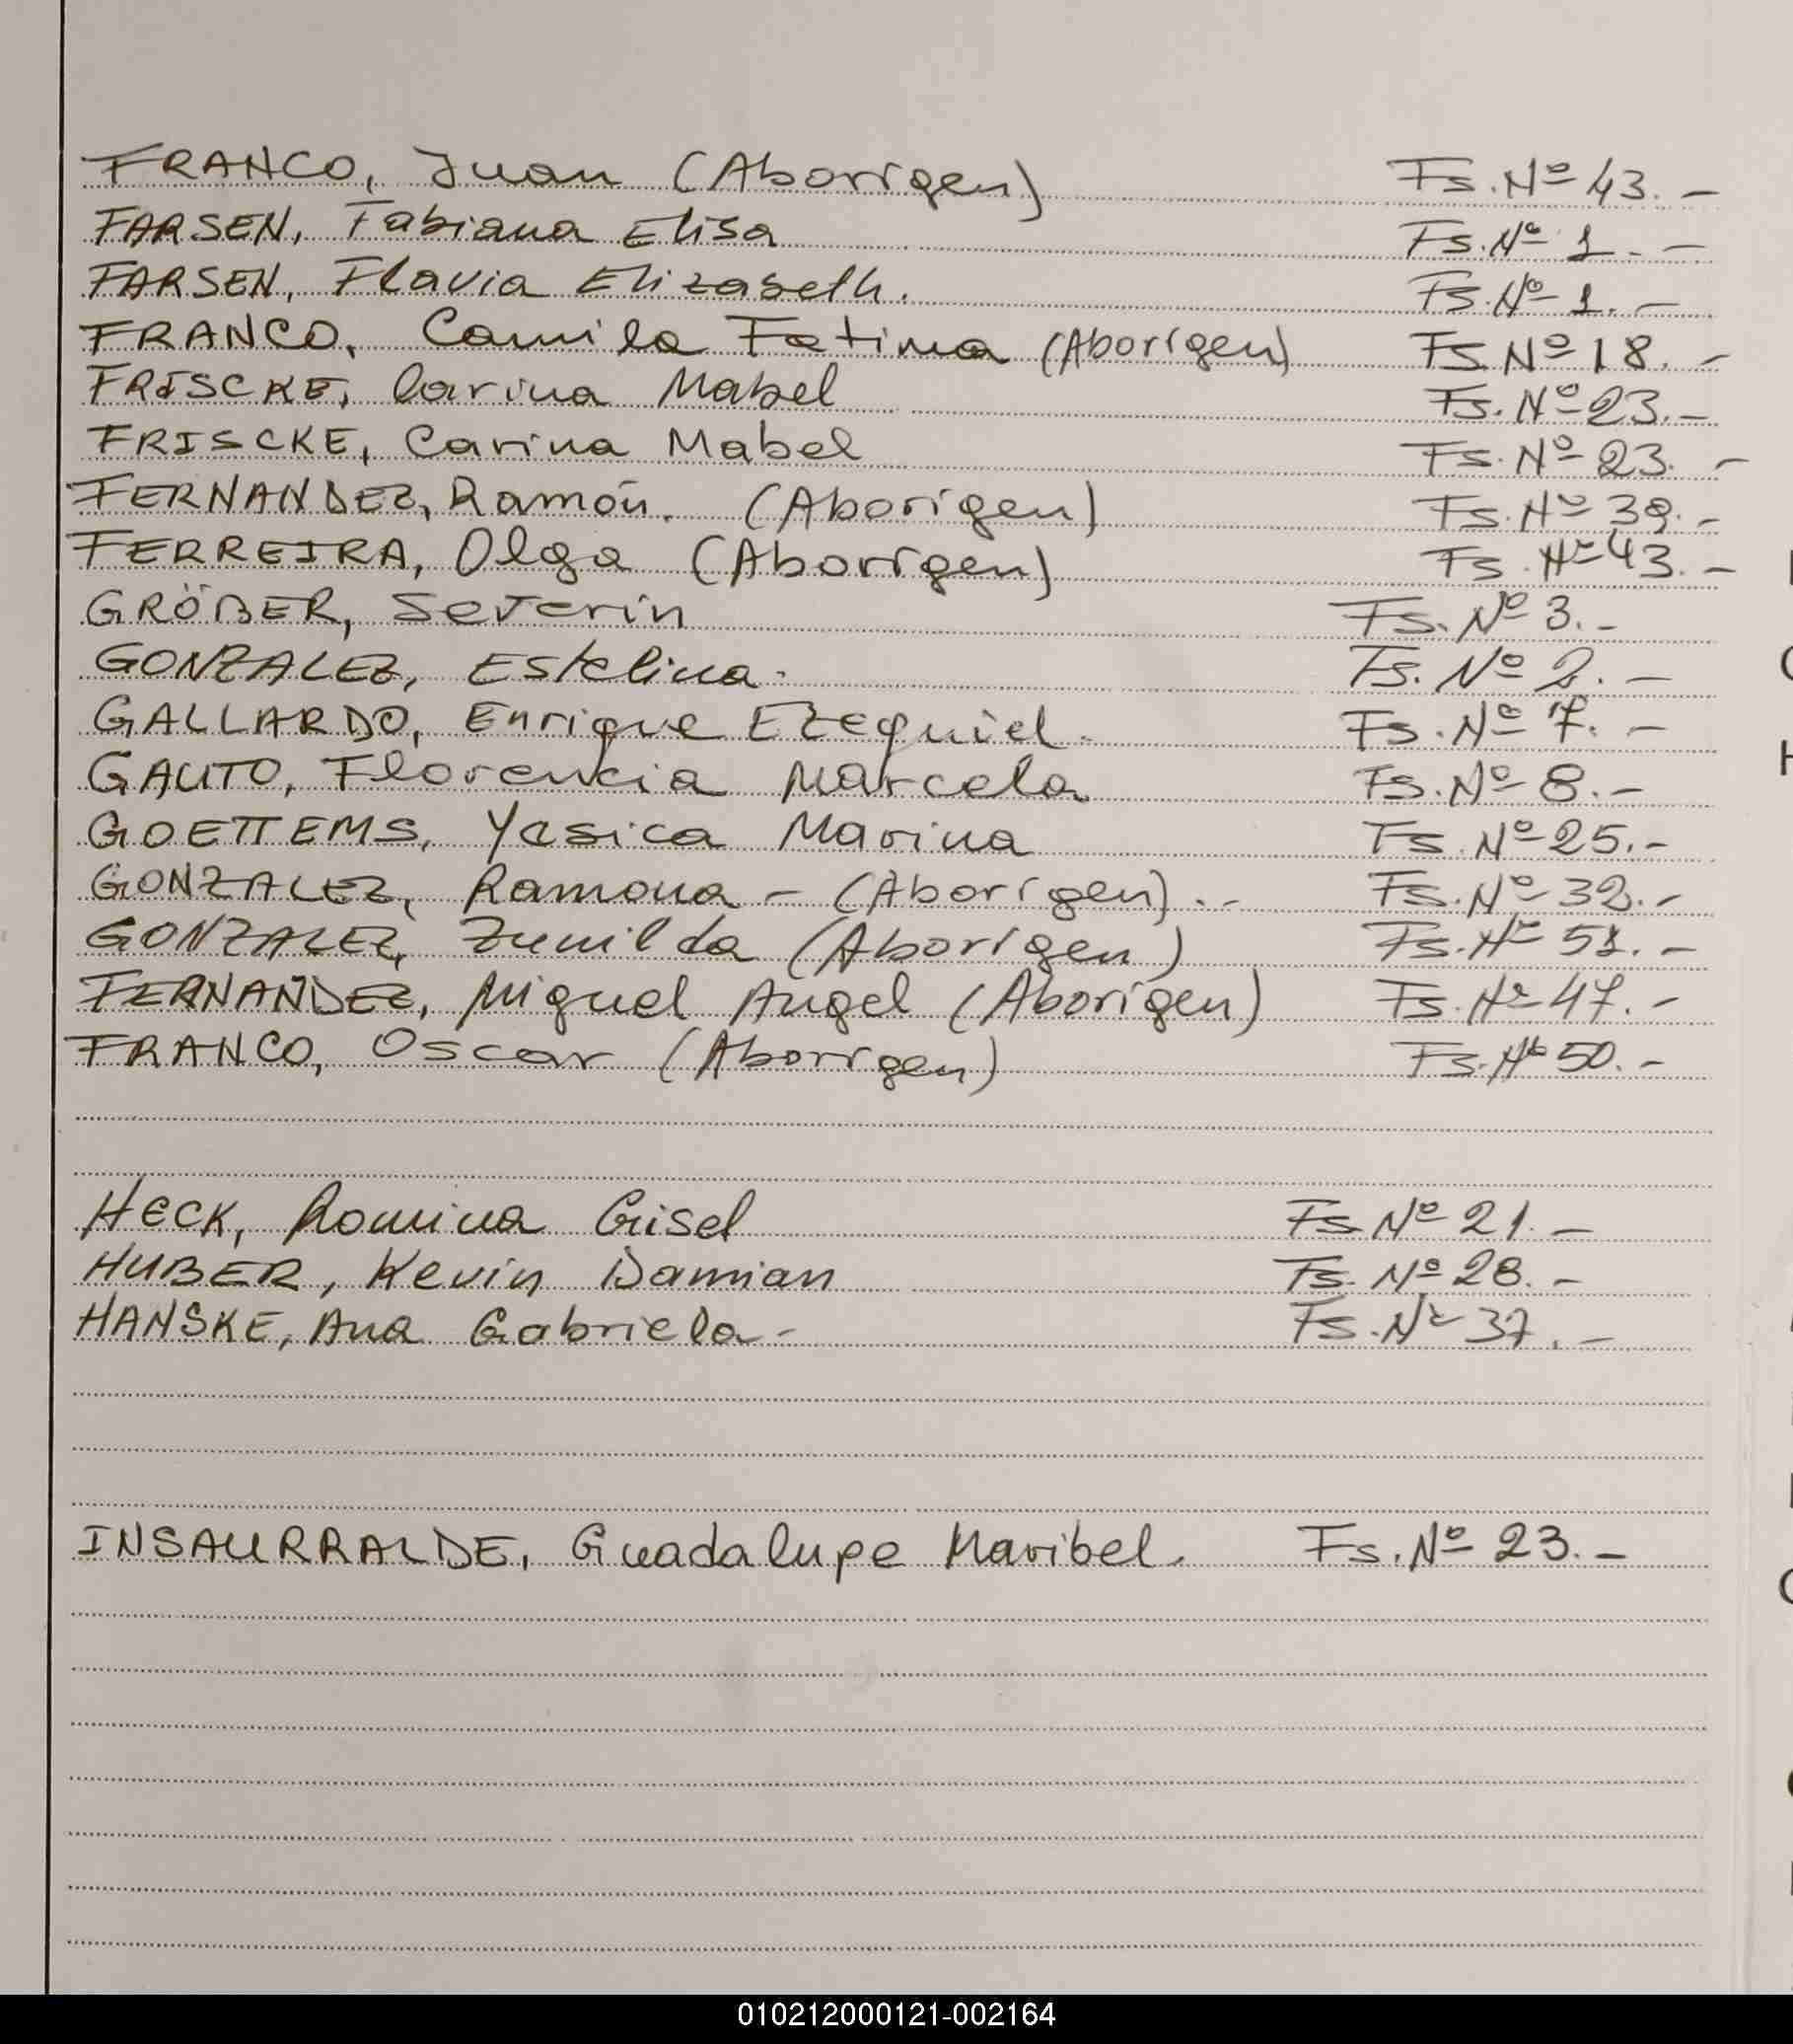 FRANCO, Juan (Aborigen) Fs. Nº 43.-
FARSEN, Fabiana Elisa Fs. Nº 1.-
FARSEN, Flavia Elizabeth. Fs. Nº 1.-
FRANCO, Camila Fatima (Aborigen) Fs. Nº 18.-
FRISCKE, Carina Mabel Fs. Nº 23.-
FRISCKE, Carina Mabel Fs. Nº 23.-
FERNANDEZ, Ramón. (Aborigen) Fs. Nº 39.-
FERREIRA, Olga (Aborigen) Fs. Nº 43.-
GRÖBER, Severin Fs. Nº 3.-
GONZALEZ, Estelina. Fs. Nº 2.-
GALLARDO, Enrique Ezequiel. Fs. Nº 7.-
GAUTO, Florencia Marcela Fs. Nº 8.-
GOETTEMS, Yesica Marina Fs. Nº 25.-
GONZALEZ, Ramona - (Aborigen).- Fs. Nº 32.-
GONZALEZ, Zunilda (Aborigen) Fs. Nº 51.-
FERNANDEZ, Miguel Angel (Aborigen) Fs. Nº 47.-
FRANCO, Oscar (Aborigen) Fs. Nº 50.-
HECK, Romina Gisel Fs Nº 21.-
HUBER, Kevin Damian Fs. Nº 28.-
HANSKE, Ana Gabriela- Fs. Nº 37.-
INSAURRALDE, Guadalupe Maribel. Fs. Nº 23.-
010212000121-002164